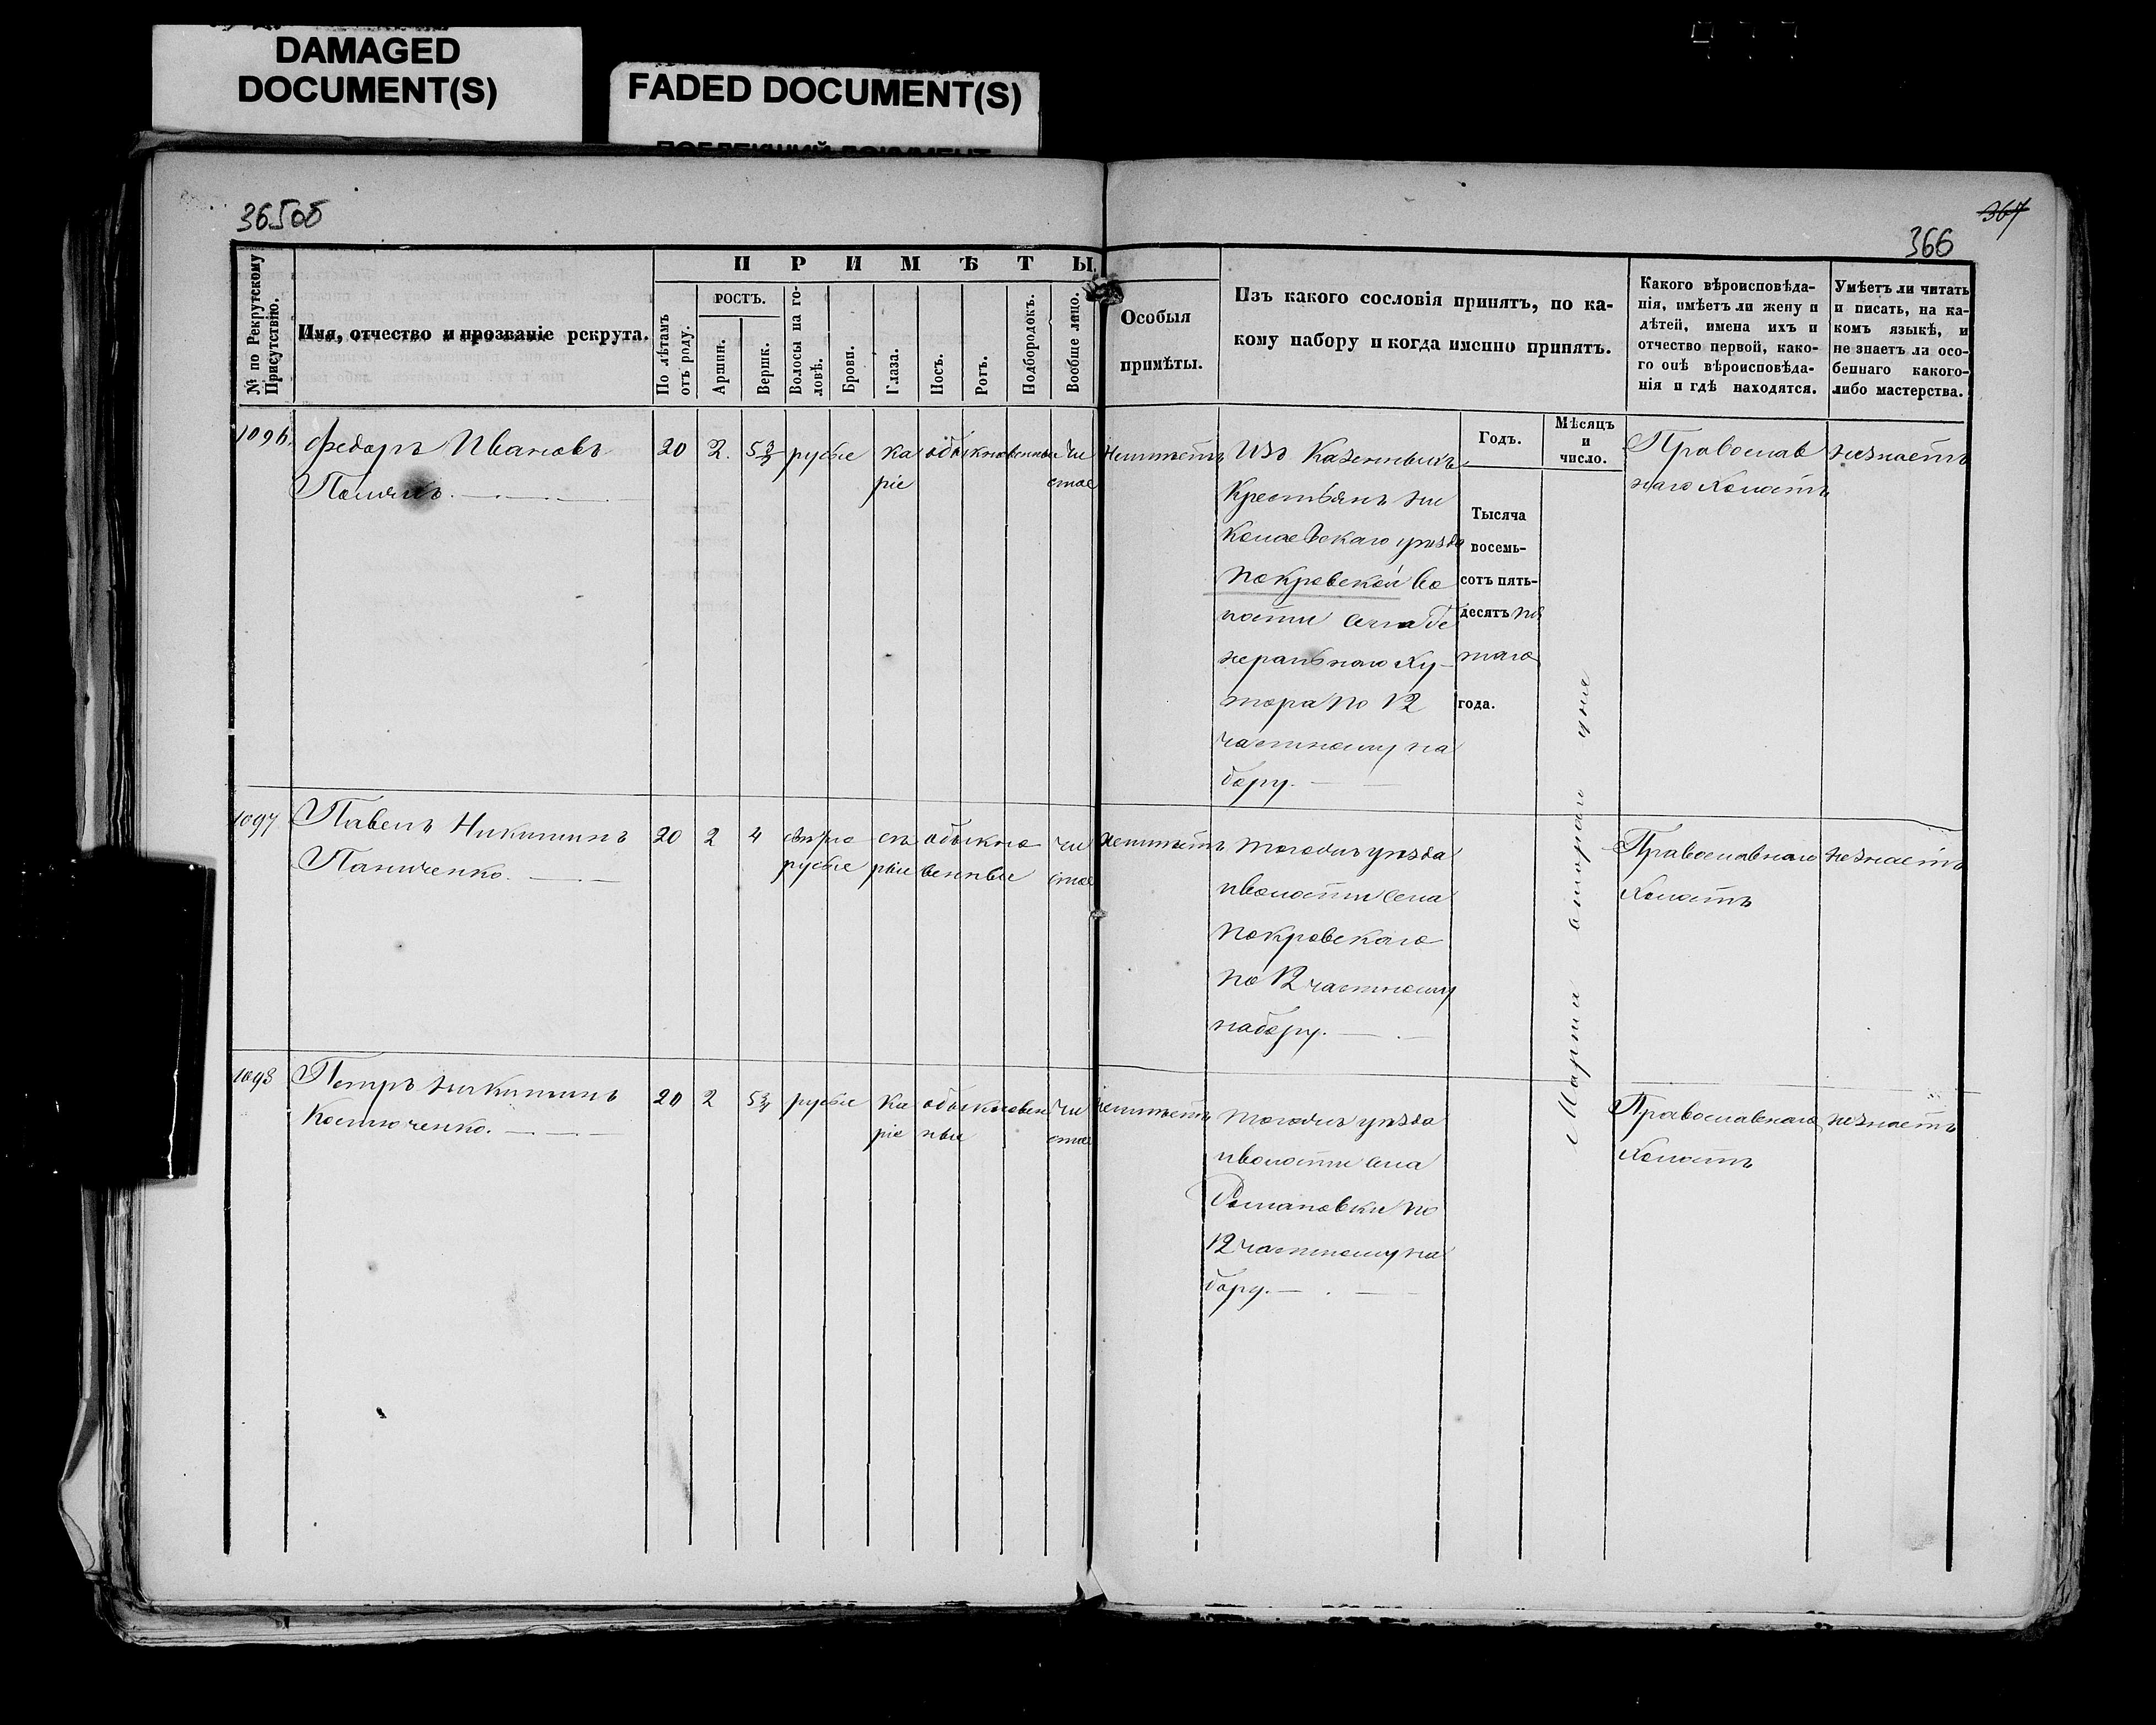 DAMAGED
DOCUMENT(S)
FADED DOCUMENT(S)
365об
367
366
№ по Рекрутскому Присутствію.
Имя, отчество и прозваніе рекрута.
ПРИМѢТЫ.
По лѣтамъ отъ роду.
РОСТЪ.
Аршин.
Вершк.
Волосы на головѣ.
Брови.
Глаза.
Носъ.
Ротъ.
Подбородокъ.
Вообще лицо.
Особыя
примѣты.
Изъ какого сословія принятъ, по ка-
кому набору и когда именно принятъ.
Какого вѣроисповѣда-
нія, имѣетъ ли жену и
дѣтей, имена ихъ и
отчество первой, како-
го онѣ вѣроисповѣда-
нія и гдѣ находятся.
Умѣетъ ли читать
и писать, на ка-
комъ языкѣ, и
не знаетъ ли осо-
беннаго какого-
либо мастерства.
Годъ.
Мѣсяцъ
и
число.
1096.
Федоръ Ивановъ
20
2.
русые
ка
ріе
обыкновенные
чи
стое
Неимѣетъ
Изъ Казенныхъ
Крестьянъ Ни
колаевскаго уѣзда
Покровской во
лости села Ге
неральнаго Ху-
тора по 12
частному на
бору.
Тысяча
восемь-
сотъ пять-
десятъ пя
таго
года.
Марта втораго дня
Православ
наго Холостъ
незнаетъ
1097
Павелъ Никитинъ
Панченко.
20
2
4
свѣтло
русые
сѣ
рые
обыкно
венные
чи
стое
Неимѣетъ
тогожъ уѣзда
иволости села
Покровскаго
по 12 частному
набору.
Православнаго
Холостъ
незнаетъ
1098
Петръ Никитинъ
Костюченко.
20
2
русые
ка
ріе
обыкновен
ные
чи
стое
Неимѣетъ
тогожъ уѣзда
иволости села
Романовки по
12 частному на
бору.
Православнаго
Холостъ
незнаетъ